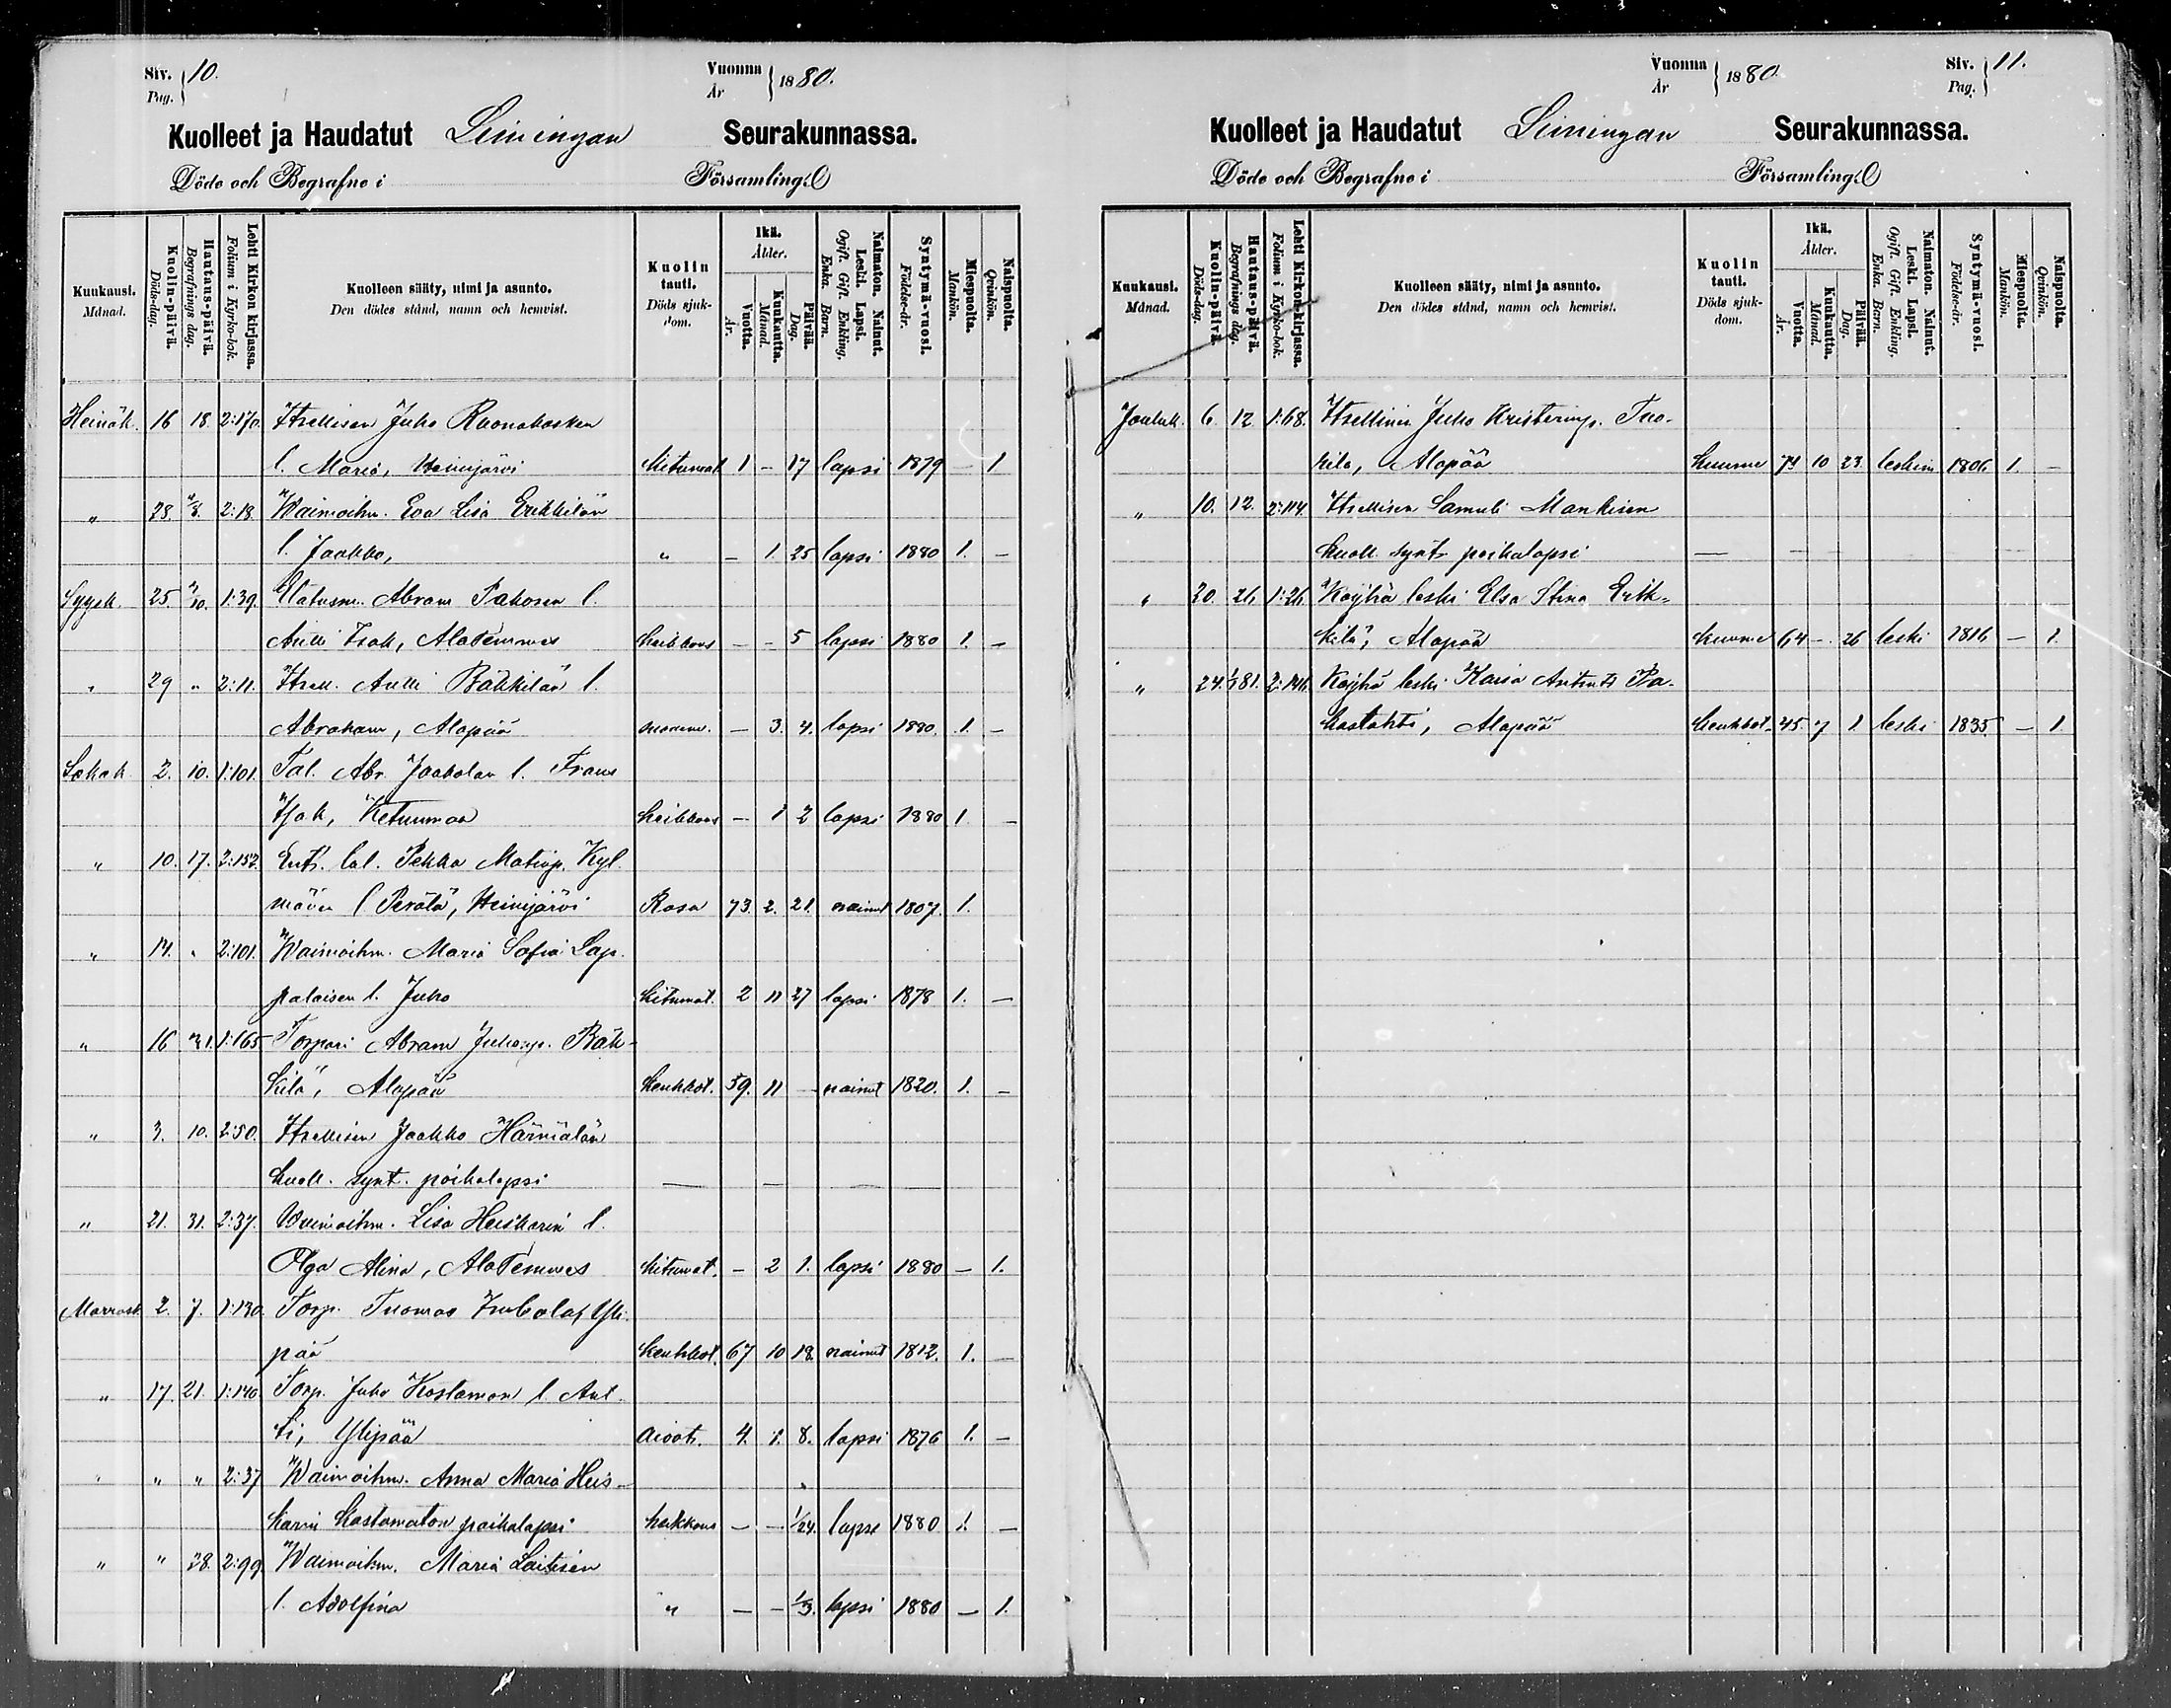 Siv. Pag. 10.
Vuonna År 1880.
Kuolleet ja Haudatut Limingan Seurakunnassa.
Döde och Begrafne i Församling.
Kuukausi. Månad.
Kuolin-päivä. Döds-dag.
Hautaus-päivä. Begrafnings dag.
Lehti Kirkon kirjassa. Folium i Kyrko-bok.
Kuolleen sääty, nimi ja asunto. Den dödes stånd, namn och hemvist.
Kuolin tauti. Döds sjukdom.
Ikä. Ålder.
Vuotta. År.
Kuukautta. Månad.
Päivää. Dag.
Naimaton. Nainut. Leski. Lapsi. Ogift. Gift. Enkling. Enka. Barn.
Syntymä-vuosi. Födelse-år.
Miespuolta. Mankön.
Naispuolta. Qvinkön.
Heinäk. 16 18. 2:170. Itsellisen Juho Ruonakosken
l. Maria, Heinijärvi kitumat. 1 - 17 lapsi 1879 - 1
" 28. 1/8. 2:18. Waimoihm. Eva Lisa Erkkilän
l. Jaakko, " - 1. 25 lapsi 1880 1. -
Syysk. 25. 3/10. 1:39. Abram Pakosen l.
Antti Isak, Alatemmes heikkous - - 5 lapsi 1880 1. -
" 29 " 2:11. Itsell. Antti Bähkilän l.
Abraham, Alapää - 3. 4. lapsi 1880. 1. -
Lokak. 2. 10. 1:101. Tal. Abr. Jaakolan l. Frans
Isak, Ketunmaa heikkous - 1 2 lapsi 1880 1. -
" 10. 17. 2:152. Ent. tal. Pekka Matinp. Kyl-
mäsen l. Perälä, Heinijärvi Rosa 73. 2. 21. nainut 1807. 1.
" 14. " 2:101. Waimoihm. Maria Sofia Lap-
palaisen l. Juho kitumat. 2 11 27 lapsi 1878 1. -
" 16 1:165 Torpari Abram Juhonp. Bäh-
kilä, Alapää keuhkot. 59. 11 - nainut 1820. 1. -
" 3. 10. 2:50. Itsellisen Jaakko Härmälän
kuoll. synt. poikalapsi — — — —
" 21. 31. 2:37. Waimoihm. Lisa Heiskarin l.
Olga Alina, Alatemmes kitumat. - 2 1. lapsi 1880 - 1.
Marrask. 2. 7. 1:130. Torp. Tuomas Yli-
pää keuhkot. 67 10 18. nainut 1812. 1. -
" 17. 21. 1:140. Torp. Juho Kostamon l. Ant-
ti, Ylipää aivot. 4. 1. 8. lapsi 1876 1. -
" " " 2:37 Waimoihm. Anna Maria Heis-
karin kastamaton poikalapsi heikkous - - 1/24. lapsi 1880 1. -
" " 28. 2:99. Waimoihm. Maria Laitisen
l. Adolfina " - - 1/3. lapsi 1880 - 1.
Vuonna År 1880
Siv. Pag. 11.
Kuolleet ja Haudatut Limingan Seurakunnassa.
Döde och Begrafne i Församling.
Kuukausi. Månad.
Kuolin-päivä. Döds-dag.
Hautaus-päivä. Begrafnings dag.
Lehti Kirkon-kirjassa. Folium i Kyrko-bok.
Kuolleen sääty, nimi ja asunto. Den dödes stånd, namn och hemvist.
Kuolin tauti. Döds sjukdom.
Ikä. Ålder.
Vuotta. År.
Kuukautta. Månad.
Päivää. Dag.
Naimaton. Nainut. Leski. Lapsi. Ogift. Gift. Enkling. Enka. Barn.
Syntymä-vuosi. Födelse-år.
Miespuolta. Mankön.
Naispuolta. Qvinkön.
Jouluk. 6. 12 1:68. Itsellinen Juho Kristerinp. Tuo-
kila, Alapää kuume 74 10 23. leskim 1806 1. -
" 10. 12. 2:114. Itsellisen Samuli Mankisen
kuoll. synt. poikalapsi — — — —
" 20. 26. 1:26. Köyhä leski Elsa Stina Erk-
kilä, Alapää kuume 64 - 26 leski 1816 - 1.
" 24. 1/1 81. Köyhä leski Kaisa Antint.
Alapää keuhkot. 45. 7 1. leski 1835. - 1.